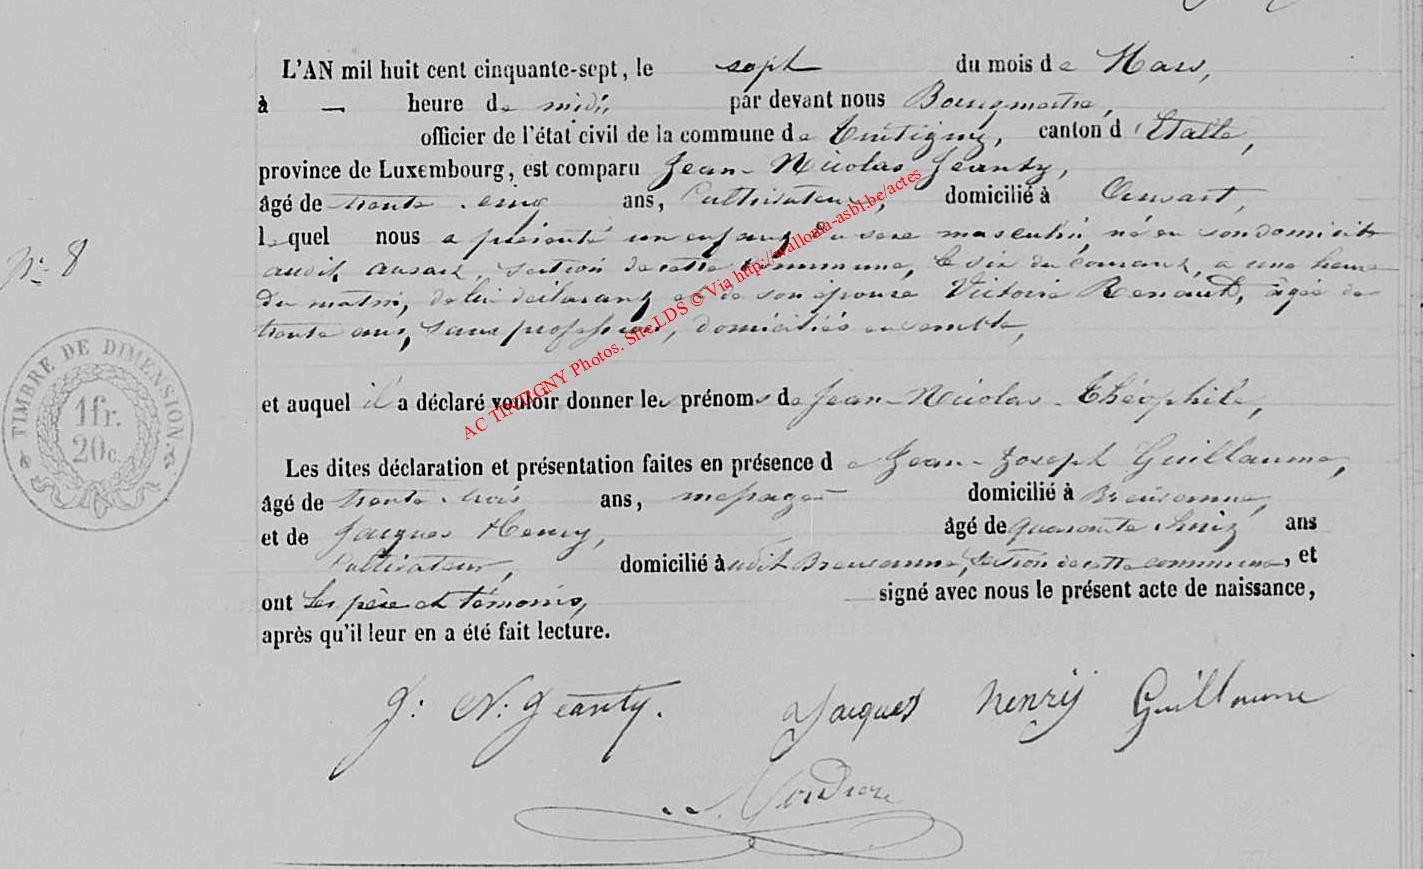 L'AN mil huit cent cinquante-sept, le sept du mois de Mars,
à — heure de midi, par devant nous Bourgmestre,
officier de l'état civil de la commune de Tintigny, canton d'Etalle,
province de Luxembourg, est comparu Jean-Nicolas Jeanty,
âgé de trente-cinq ans, Cultivateur, domicilié à Ansart,
N° 8
lequel nous a présenté un enfant du sexe masculin, né en son domicile
audit Ansart, section de cette commune, le six du courant, à une heure
du matin, de lui déclarant et de son épouse Victoire Renault, âgée de
trente ans, sans profession, domiciliés ensemble,
et auquel il a déclaré vouloir donner les prénoms de Jean-Nicolas-Théophile,
Les dites déclaration et présentation faites en présence de Jean-Joseph Guillaume,
âgé de trente-trois ans, messager domicilié à Breuvanne,
et de Jacques Henry, âgé de quarante huit ans
Cultivateur, domicilié audit Breuvanne, section de cette commune, et
ont les père et témoins, signé avec nous le présent acte de naissance,
après qu'il leur en a été fait lecture.
J: N: Jeanty. Jacques henrÿ Guillaume
TIMBRE DE DIMENSION.
1fr.
20c.
AC TINTIGNY Photos. Site LDS © Via http://wallonia-asbl.be/actes